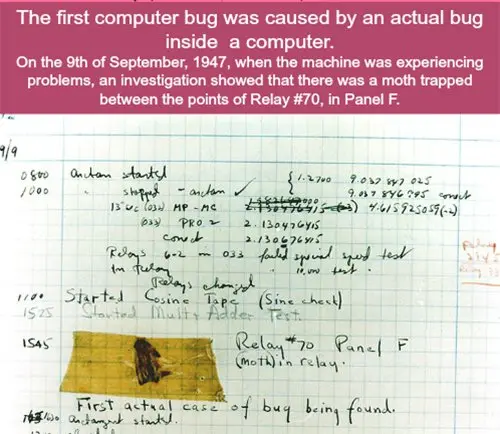 The first computer bug was caused by an actual bug
inside a computer.
On the 9th of September, 1947, when the machine was experiencing
problems, an investigation showed that there was a moth trapped
between the points of Relay #70, in Panel F.
9/9
0800 antan started
1000 " stopped - antan ✓
{ 1.2700 9.037 847 025
9.037 846 995 correct
13"uc (032) MP - MC 4.615925059(-2)
(033) PRO. 2 2.130476415
correct 2.130676415
Relays 6-2 in 033 failed special speed test
In Relay " 10,000 test.
Relays changed
1100 Started Cosine Tape (Sine check)
1525 Started Mult + Adder Test.
1545 Relay #70 Panel F
(moth) in relay.
First actual case of bug being found.
antangent started.